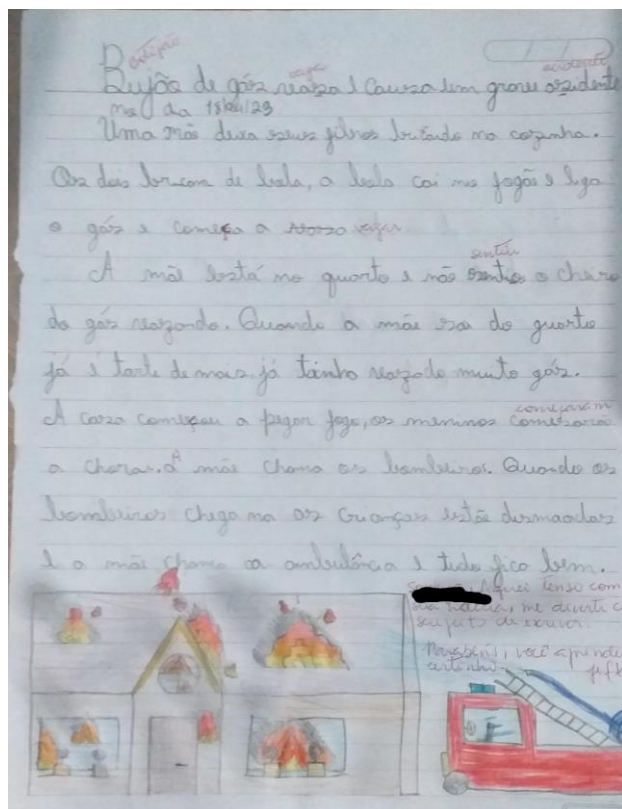 Bujão de gás reaza e Causa um grave asidente
no da 15/04/23
Uma mãe deixa seus filhos bricando na cozinha.
Os dois bricam de bola, a bola cai no fogão e liga
o gás e começa a vazar
A mãe está no quarto e não sentiu o cheiro
do gás reazando. Quando a mãe sai do quarto
já é tarde de mais, já tainho reazado muito gás.
começaram
A caza começou a pegar fogo, os meninos
a chorar. A mãe chama os bombeiros. Quando os
bombeiros chega na as crianças estão dismaadas
e a mãe chama aa ambulância e tudo fico bem.
fiquei tenso com
sua notícia, me diverti c
seu jeito de escrever.
Parabéns, você aprende
certinho